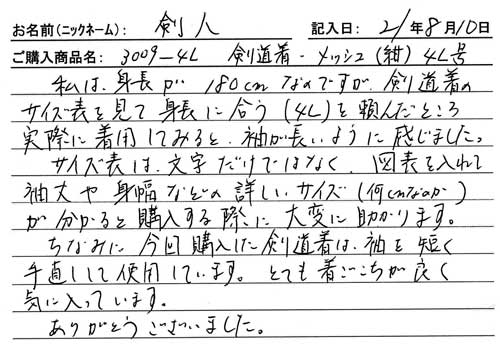 お名前(ニックネーム): 剣人 記入日: 21年8月10日
ご購入商品名: 3009-4L 剣道着・メッシュ(紺)4L号
私は、身長が 180cmなのですが、剣道着の
サイズ表を見て身長に合う(4L)を頼んだところ
実際に着用してみると、袖が長いように感じました。
サイズ表は、文字だけではなく、図表を入れて
袖丈や身幅などの詳しいサイズ(何cmなのか)
が分かると購入する際に大変に助かります。
ちなみに今回購入した剣道着は、袖を短く
手直しして使用しています。とても着ごこちが良く
気に入っています。
ありがとうございました。